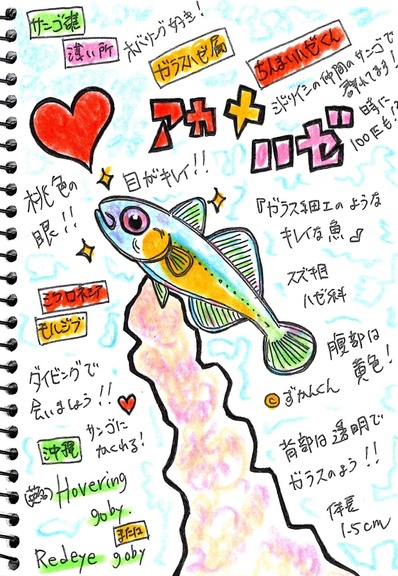 サンゴ礁
浅い所
ホバリング好き!
ガラスハゼ属
ちんまいハゼくん
アカメ
ハゼ
ミドリイシの仲間のサンゴで
群れてます!
時に
100匹も!?
桃色の
眼!!
目がキレイ!!
『ガラス細工のような
キレイな魚』
スズキ目
ハゼ科
ミクロネシア
モルジブ
腹部は
黄色!
©ずかんくん
ダイビングで
会いましょう!!
サンゴに
かくれる!
沖縄
背部は透明で
ガラスのよう!!
(英名) Hovering
goby.
または
Redeye goby
体長
1.5cm